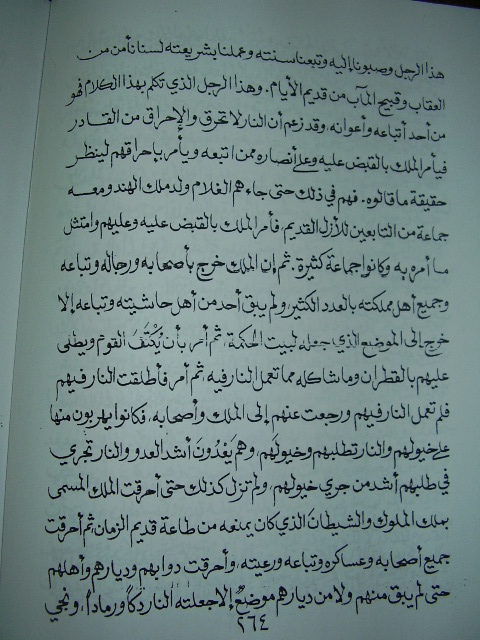 هذا الرجل وصبونا إليه وتبعنا سنته وعملنا بشريعته لسنا نأمن من
العقاب وقبيح المآب من قديم الأيام. وهذا الرجل الذي تكلم بهذا الكلام فهو
من أحد أتباعه وأعوانه. وقد زعم أن النار لا تحرق والإحراق من القادر
فيأمر الملك بالقبض عليه وعلى أنصاره ممن اتبعه ويأمر باحراقهم لينظر
حقيقة ما قالوه. فهم في ذلك حتى جاءهم الغلام ولد ملك الهند ومعه
جماعة من التابعين للأزل القديم، فأمر الملك بالقبض عليه وعليهم وامتثل
ما أمره به وكانوا جماعة كثيرة. ثم إن الملك خرج بأصحابه ورجاله وتباعه
وجميع أهل مملكته بالعدد الكثير ولم يبق أحد من أهل حاشيته وتباعه إلا
خرج إلى الموضع الذي جعله لبيت الحكمة، ثم أمر بأن يُكَتَّفَ القوم ويطلى
عليهم بالقطران وما شاكله مما تعمل النار فيه، ثم أمر فأطلقت النار فيهم
فلم تعمل النار فيهم ورجعت عنهم إلى الملك وأصحابه، فكانوا يهربون منها
على خيولهم والنار تطلبهم وخيولهم، وهم يَعْدُونَ أشد العدو والنار تجري
في طلبهم أشد من جري خيولهم، ولم تزل كذلك حتى أحرقت الملك المسمى
بملك الملوك والشيطان الذي كان يمنعه من طاعة قديم الزمان، ثم أحرقت
جميع أصحابه وعساكره وتباعه ورعيته، وأحرقت دوابهم وديارهم وأهلهم
حتى لم يبق منهم ولا من ديارهم موضعٌ إلا جعلته النار دكاً ورماداً، ونجي
٢٦٤